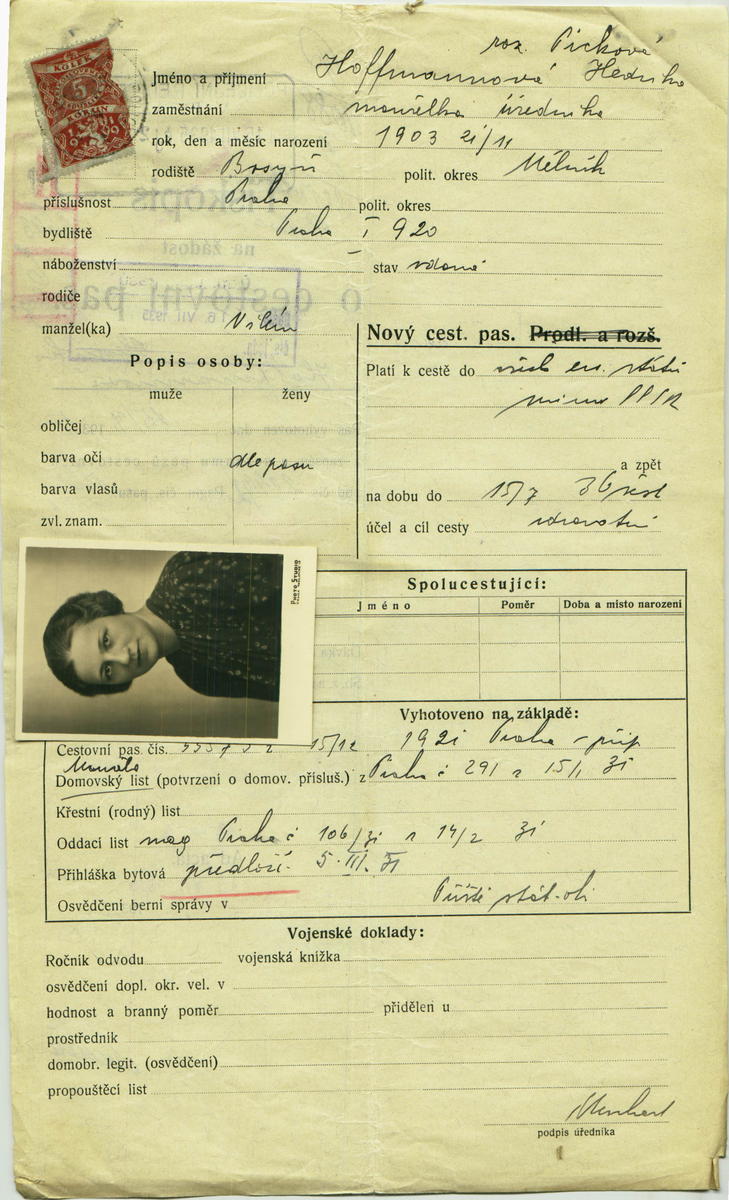 KOLEK
5
KORUN
1919
roz. Picková
Jméno a příjmení Hoffmannová Hedvika
zaměstnání manželka úředníka
rok, den a měsíc narození 1903 21/11
rodiště Bosyň polit. okres Mělník
příslušnost Praha polit. okres
bydliště Praha I 920
náboženství stav vdaná
rodiče
manžel(ka) Vilém
Nový cest. pas. Prodl. a rozš.
Popis osoby:
muže ženy
Platí k cestě do všech ev. států
mimo SSSR
obličej
barva očí dle pasu
a zpět
barva vlasů
na dobu do 15/7 36
zvl. znam.
účel a cíl cesty zdravotní
PHOTO STUDIO
Spolucestující:
Jméno Poměr Doba a místo narození
Vyhotoveno na základě:
Cestovní pas čís. 15/12 Praha
Domovský list (potvrzení o domov. přísluš.) z Praha č 291 z 15/1 31
Křestní (rodný) list
Oddací list mag Praha č 106/31 z 14/2 31
Přihláška bytová předloží 5. III. 31
Osvědčení berní správy v
Vojenské doklady:
Ročník odvodu vojenská knížka
osvědčení dopl. okr. vel. v
hodnost a branný poměr přidělen u
prostředník
domobr. legit. (osvědčení)
propouštěcí list
podpis úředníka